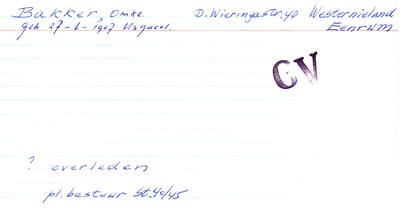 Bakker, Omke. D. Wieringastr. 40 Westernieland
geh 27-6-1907 Usquert. Eenrum
CV
? overleden
pl. bestuur St. 40/45